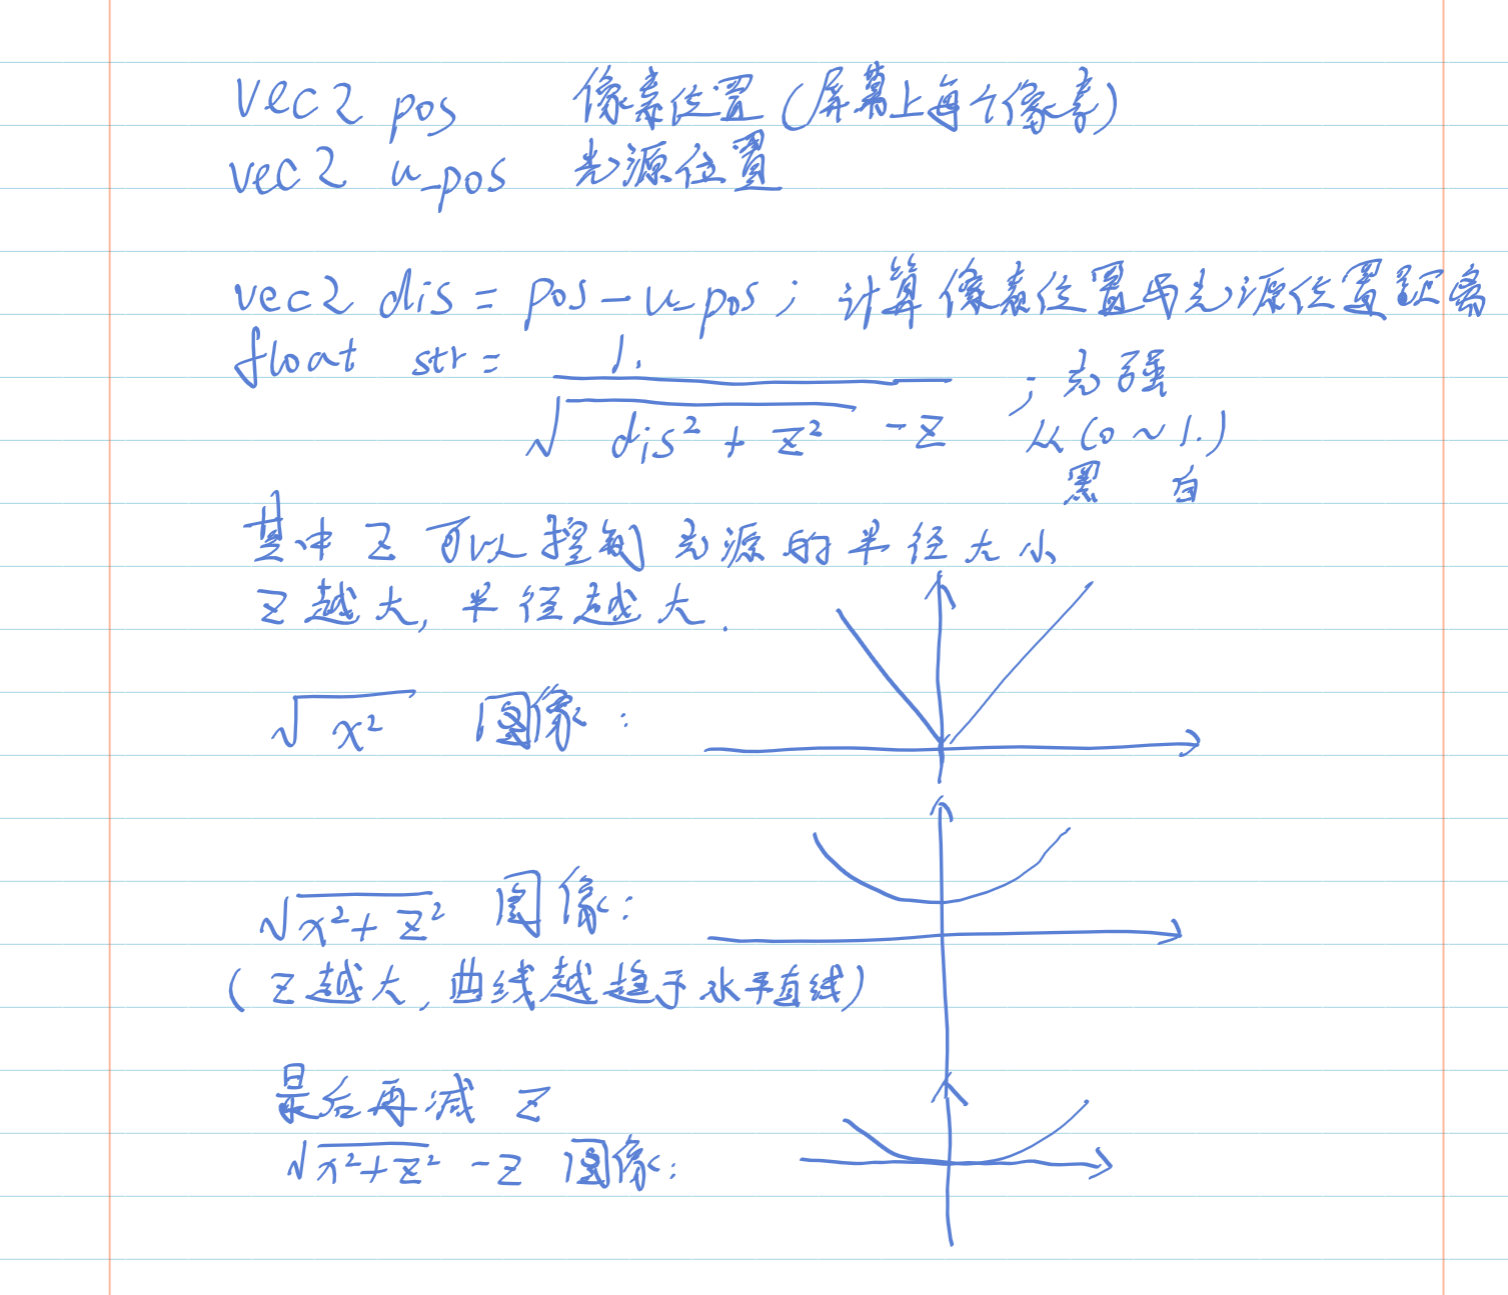 vec2 pos 像素位置(屏幕上每个像素)
vec2 u_pos 光源位置
vec2 dis = pos - u_pos; 计算像素位置与光源位置距离
float str = 1. / √(dis² + z²) - z ; 光强
从(0 ~ 1.)
黑 白
其中 z 可以控制光源的半径大小
z 越大, 半径越大.
√x² 图像:
√(x²+z²) 图像:
(z 越大, 曲线越趋于水平直线)
最后再减 z
√(x²+z²) - z 图像: